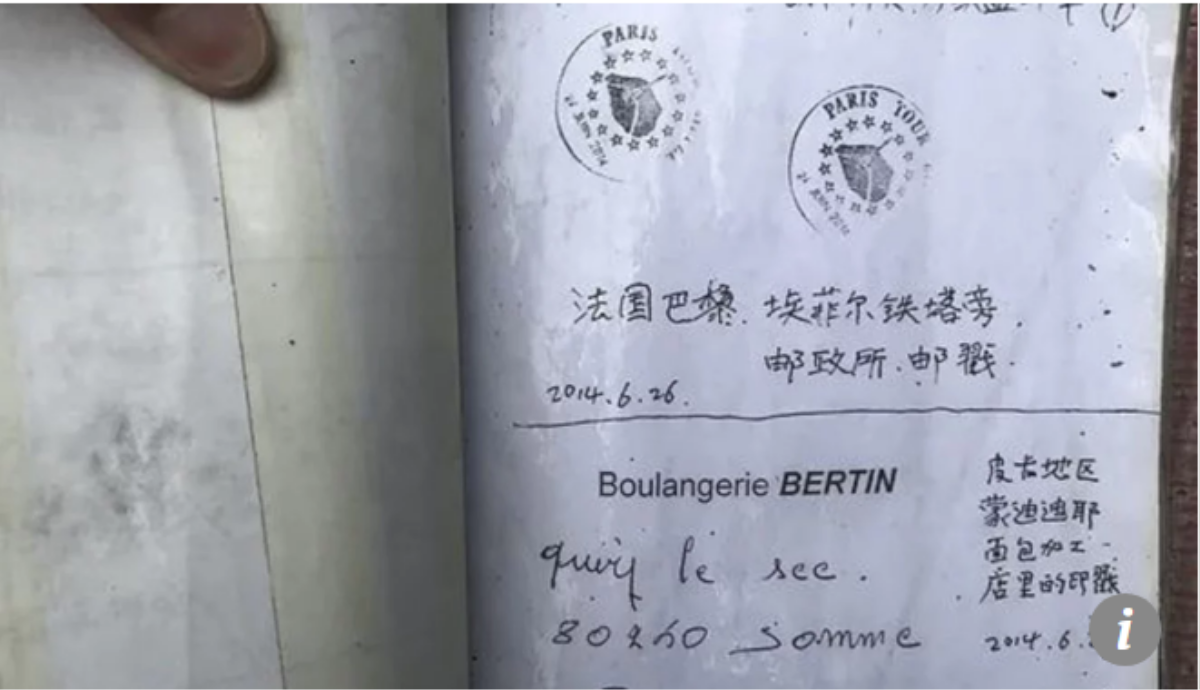 PARIS
PARIS TOUR
法国巴黎. 埃菲尔铁塔旁.
邮政所.邮戳.
2014.6.26.
Boulangerie BERTIN
皮卡地区
蒙迪迪耶
面包加工
店里的印戳
quiry le sec.
somme
2014.6.
i